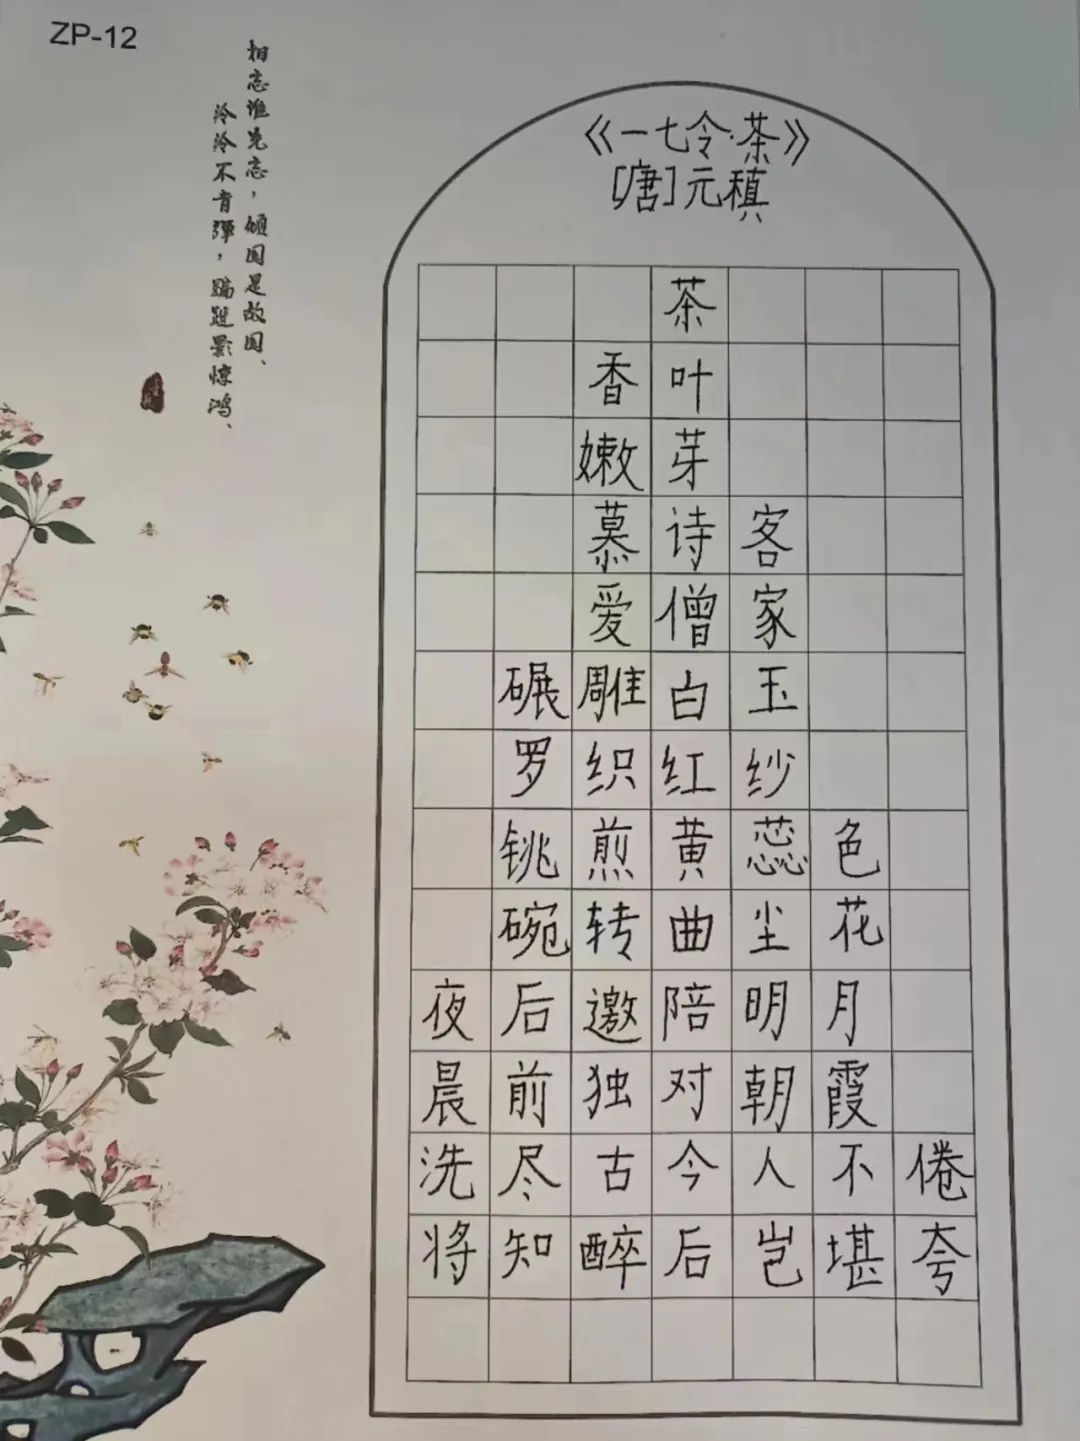 ZP-12
相忘谁先忘，倾国是故国、
泠泠不肯弹，蹁跹影惊鸿、
《一七令·茶》
[唐]元稹
茶
香叶
嫩芽
慕诗客
爱僧家
碾雕白玉
罗织红纱
铫煎黄蕊色
碗转曲尘花
夜后邀陪明月
晨前独对朝霞
洗尽古今人不倦
将知醉后岂堪夸